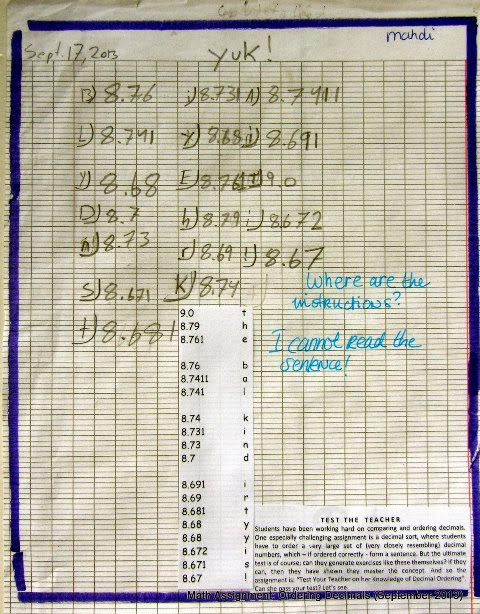 mahdi
Sept. 17, 2013
yuk!
B) 8.76 j) 8.731 A) 8.7411
L) 8.741 y) 8.68 i) 8.691
y) 8.68 E) 8.761 T) 9.0
D) 8.7 h) 8.79 i) 8.672
n) 8.73 r) 8.69 !) 8.67
S) 8.671 K) 8.74
t) 8.681
Where are the
instructions?
I cannot read the
sentence!
9.0 t
8.79 h
8.761 e
8.76 b
8.7411 a
8.741 l
8.74 k
8.731 i
8.73 n
8.7 d
8.691 i
8.69 r
8.681 t
8.68 y
8.68 y
8.672 i
8.671 s
8.67 !
TEST THE TEACHER
Students have been working hard on comparing and ordering decimals.
One especially challenging assignment is a decimal sort, where students
have to order a very large set of (very closely resembling) decimal
numbers, which – if ordered correctly - form a sentence. But the ultimate
test is of course; can they generate exercises like these themselves? If they
can, then they have shown they master the concept. And so the
assignment is: "Test Your Teacher on her Knowledge of Decimal Ordering".
Can she pass your test? Let's see.
Math Assignment: Ordering Decimals (September 2013)